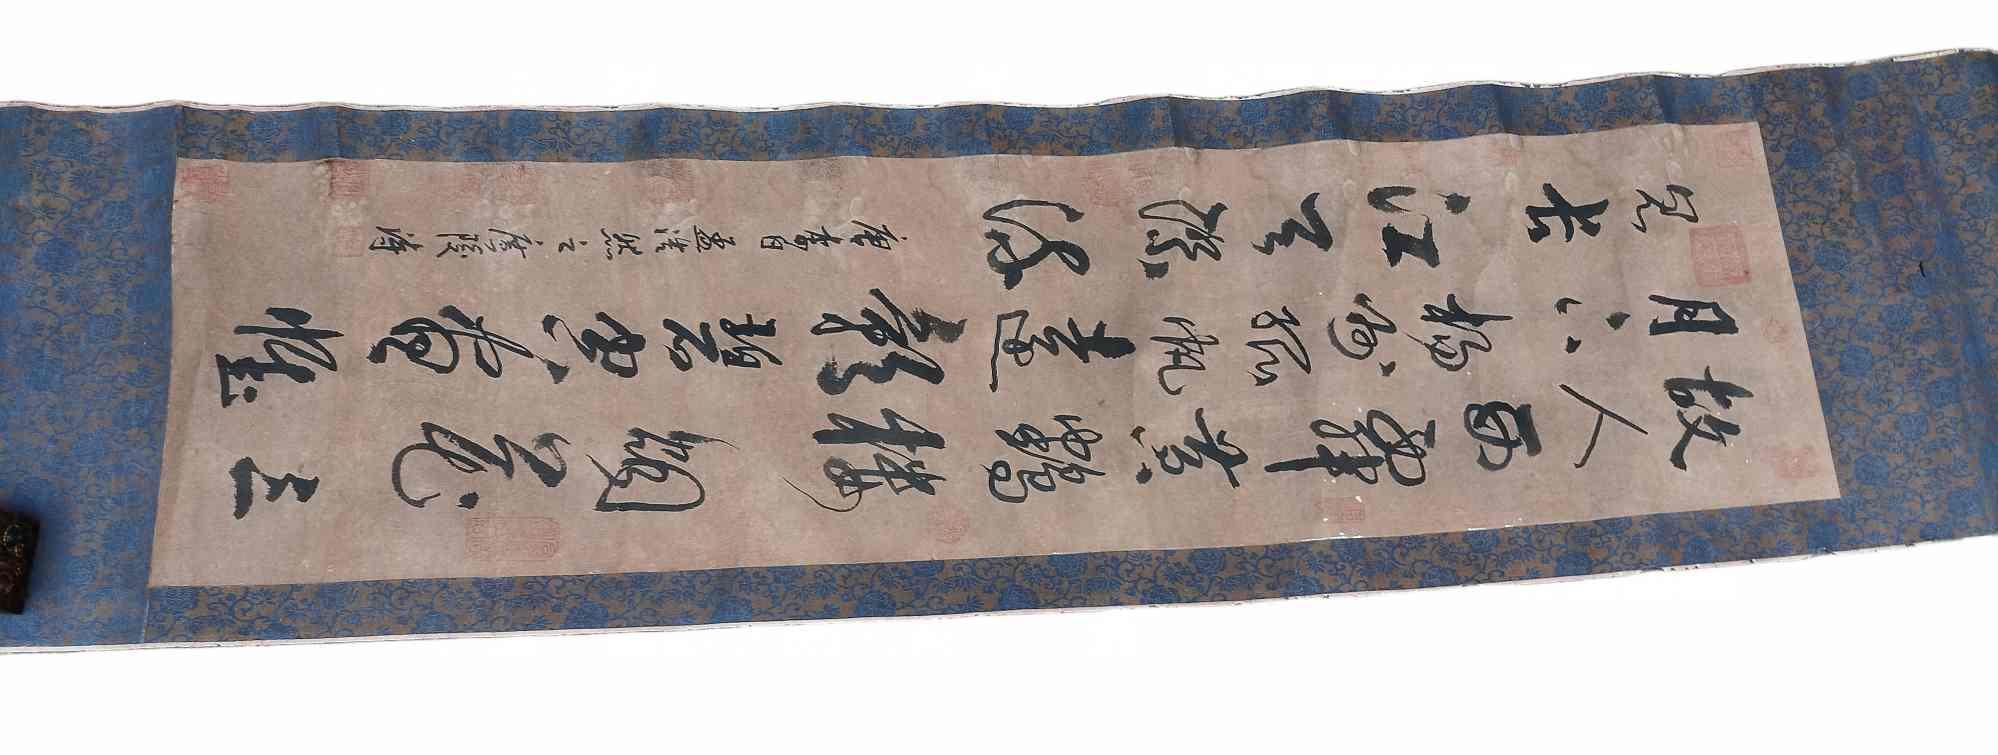 故人西辭黃鶴樓煙花三
月下揚州孤帆遠影碧空盡惟
見長江天際流
唐李白孟浩然之廣陵詩